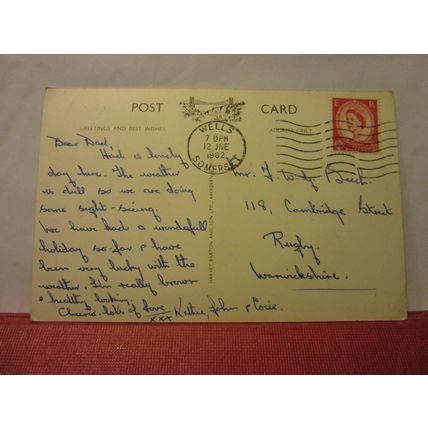 POST CARD
GREETINGS AND BEST WISHES
ADDRESS ONLY
WELLS
7 PM
12 JNE
1962
SOMERSET
E R
HARVEY BARTON AND SON LTD.
Dear Dad,
Had a lovely
day here. The weather
is dull so we are doing
some sight-seeing.
We have had a wonderfull
holiday so far & have
been very lucky with the
weather. I'm really brown
& healthy looking.
Cheerio. lots of love
xxx Kathie, John &
Mr. F. W. Beech.
118, Cambridge Street
Rugby.
Warwickshire.